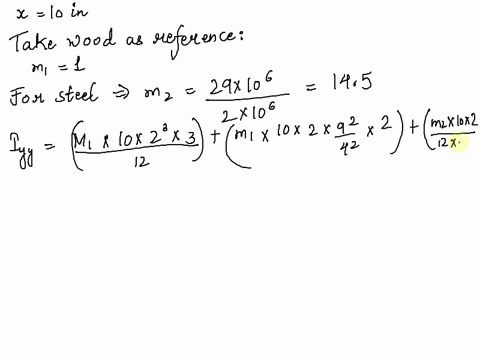 x = 10 in
Take wood as reference:
m₁ = 1
For steel ⇒ m₂ = 29×10⁶ / 2×10⁶ = 14.5
I_yy = (M₁ × 10 × 2³ × 3 / 12) + (m₁ × 10 × 2 × 9² / 4² × 2) + (m₂ × 10 × 2 / 12 ×